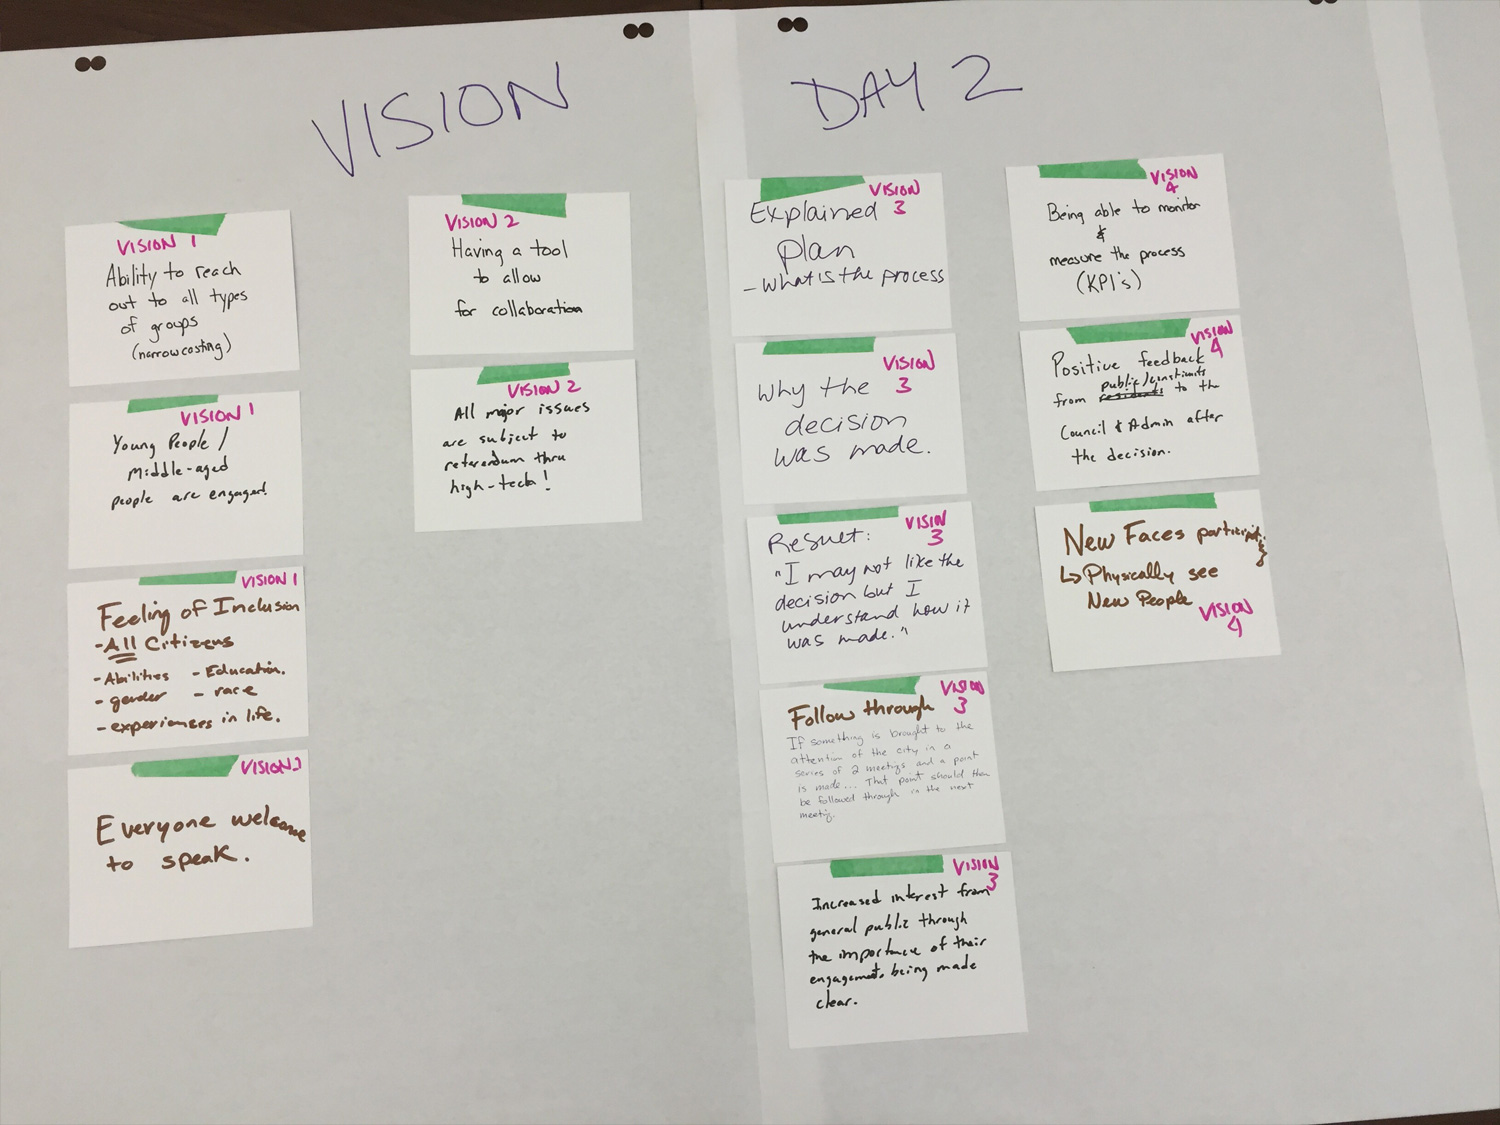 VISION DAY 2
VISION 1
Ability to reach
out to all types
of groups
(narrowcasting)
VISION 1
Young People/
Middle-aged
people are engaged.
VISION 1
Feeling of Inclusion
- All Citizens
- Abilities - Education.
- gender - race
- experiences in life.
VISION 1
Everyone welcome
to speak.
VISION 2
Having a tool
to allow
for collaboration
VISION 2
All major issues
are subject to
referendum thru
high-tech!
VISION
3
Explained
plan
- what is the process
VISION
3
Why the
decision
was made.
VISION
3
Result:
"I may not like the
decision but I
understand how it
was made."
VISION
3
Follow through
If something is brought to the
attention of the city in a
series of 2 meetings and a point
is made... That point should then
be followed through in the next
meeting.
VISION
3
Increased interest from
general public through
the importance of their
engagement being made
clear.
VISION
4
Being able to monitor
&
measure the process
(KPI's)
VISION
4
Positive feedback
public/
from residents to the
Council & Admin after
the decision.
New Faces
↳ Physically see
New People
VISION
4